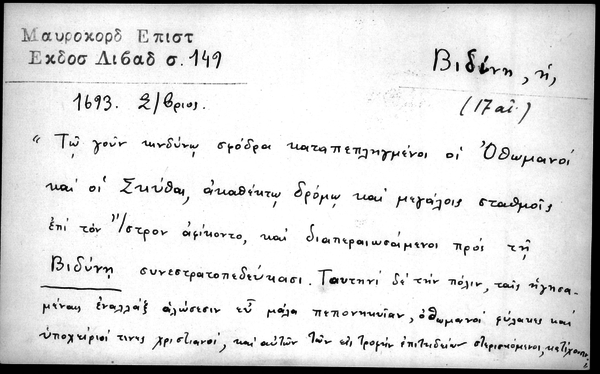 Μαυροκορδ Επιστ
Εκδοσ Λιβαδ σ. 149
Βιδύνη, ἡ,
1693. 2/βριος.
(17 αἰ.)
"Τῷ γοῦν κινδύνῳ σφόδρα καταπεπληγμένοι οἱ Ὀθωμανοί
καὶ οἱ Σκύθαι, ἀκαθέκτῳ δρόμῳ καὶ μεγάλοις σταθμοῖς
ἐπὶ τὸν Ἴστρον ἀφίκοντο, καὶ διαπεραιωσάμενοι πρὸς τῇ
Βιδύνῃ συνεστρατοπεδεύκασι. Ταυτηνὶ δὲ τὴν πόλιν, ταῖς ἡγησα-
μέναις ἐναλλὰξ ἁλώσεσιν εὖ μάλα πεπονηκυῖαν, ὀθωμανοὶ φύλακες καὶ
ὑποχείριοί τινες χριστιανοί, καὶ αὐτῶν τῶν εἰς τροφὴν ἐπιτηδείων στερισκόμενοι,